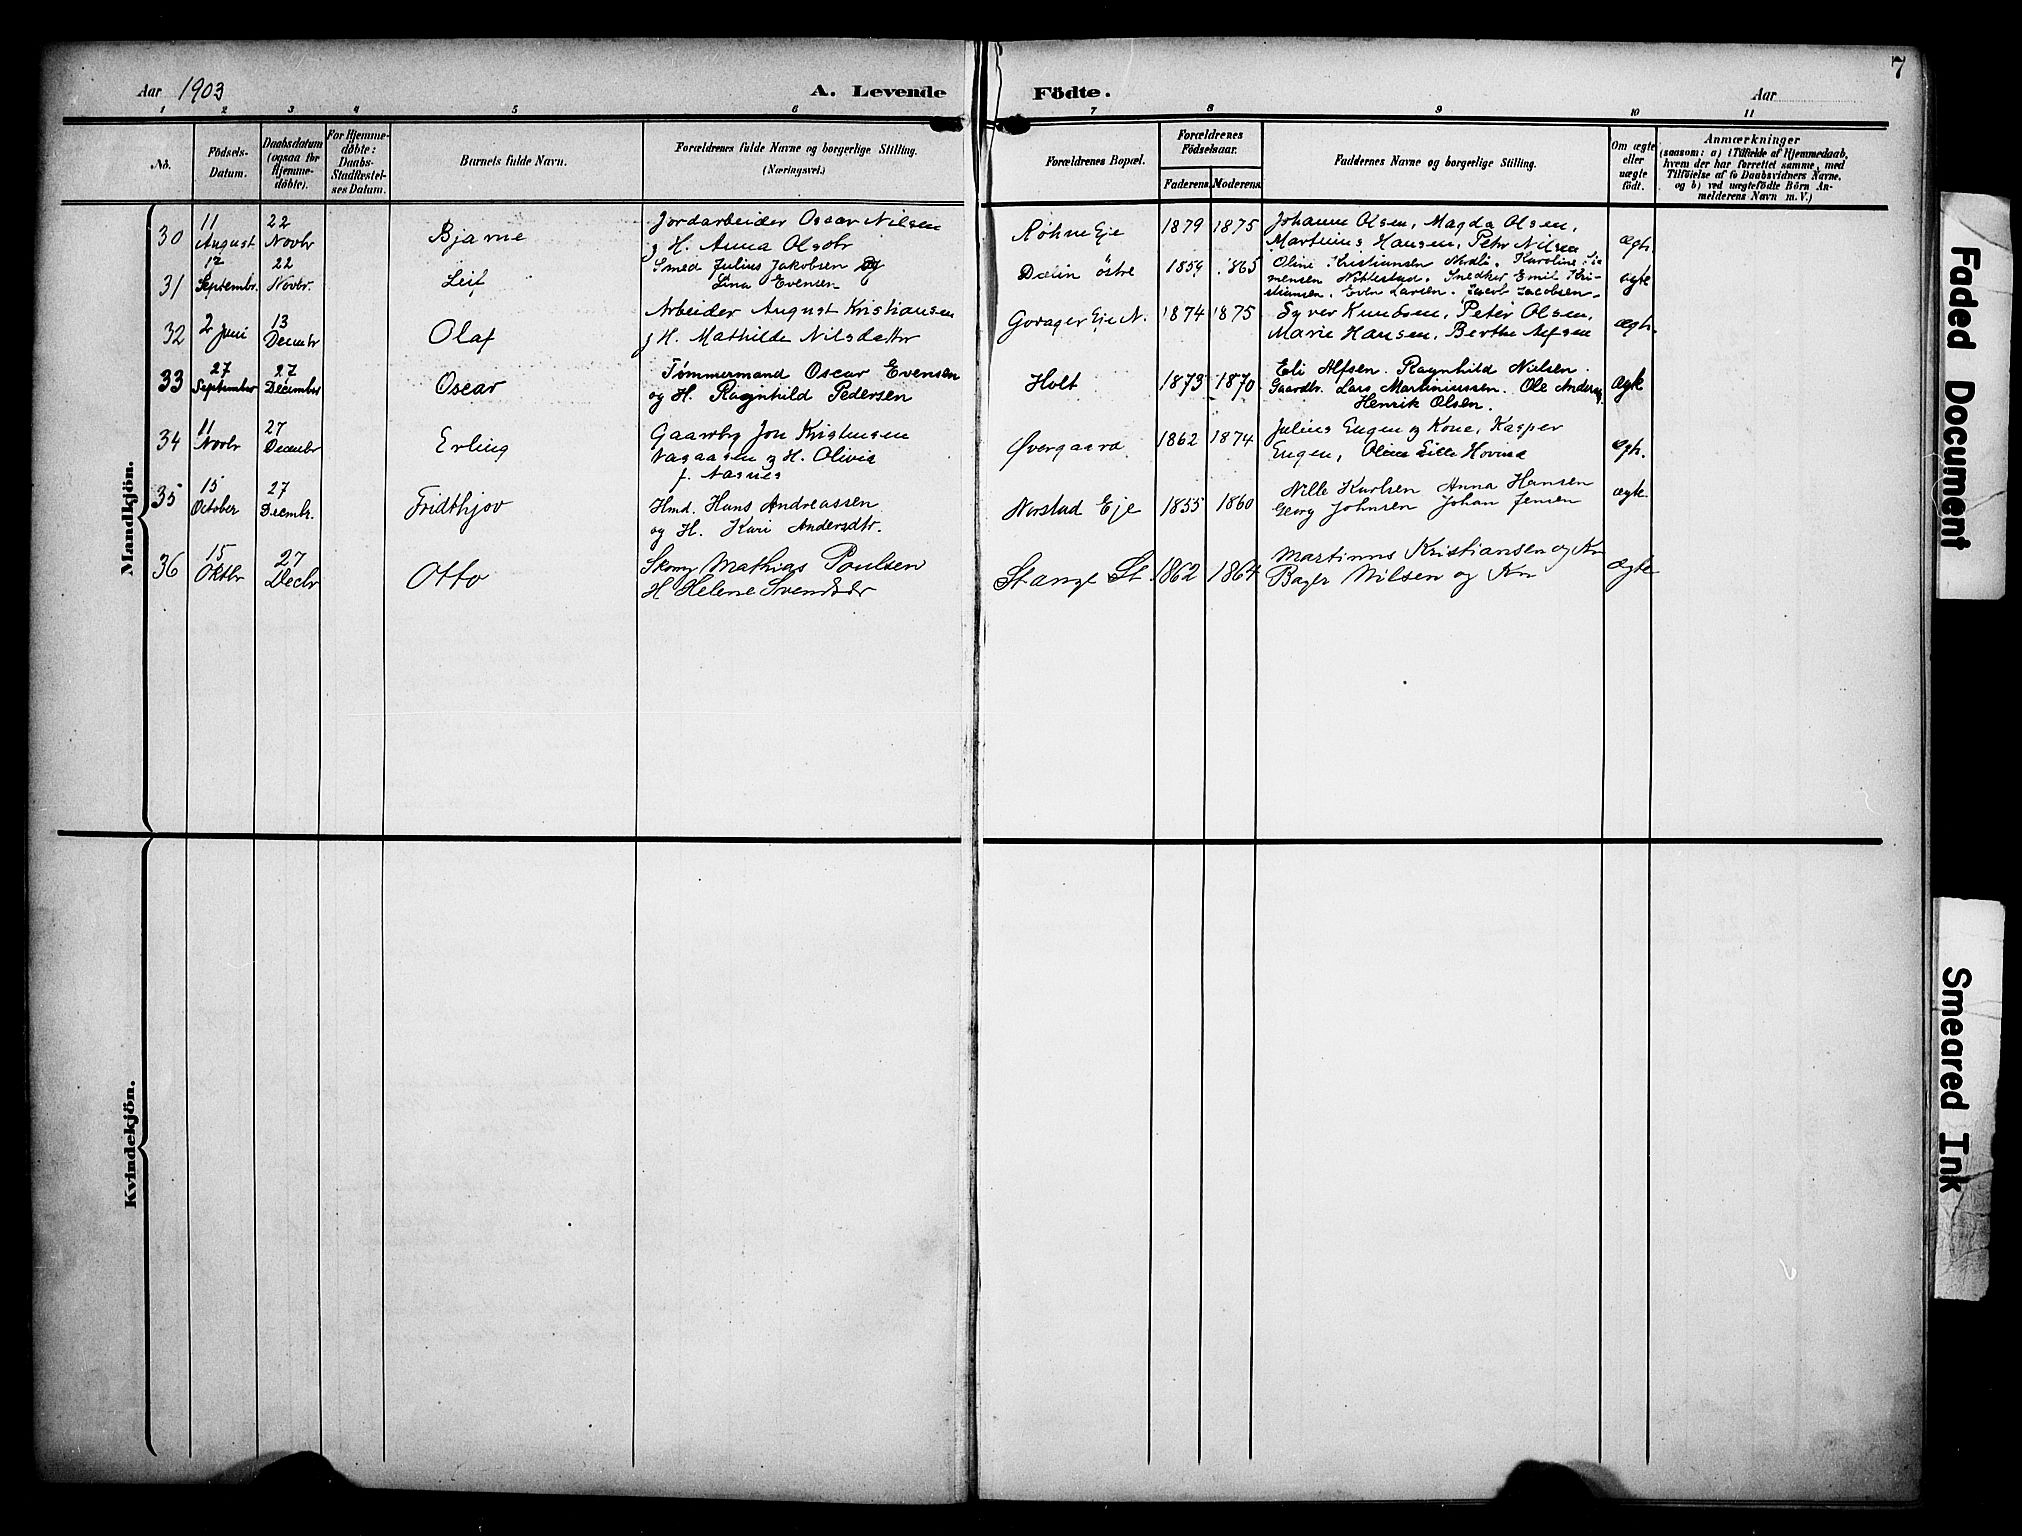 7
Aar 1903
A. Levende Födte.
Aar
1 2 3 4 5 6 7 8 9 10 11
No.
Födsels-
Datum.
Daabsdatum
(ogsaa for
Hjemme-
döbte).
For Hjemme-
döbte:
Daabs-
Stadfæstel-
ses Datum.
Barnets fulde Navn.
Forældrenes fulde Navne og borgerlige Stilling.
(Næringsvei.)
Forældrenes Bopæl.
Forældrenes
Födselsaar.
Faderens. Moderens.
Faddernes Navne og borgerlige Stilling.
Om ægte
eller
uægte
födt.
Anmærkninger
(saasom: a) i Tilfælde af Hjemmedaab,
hvem der har forrettet samme, med
Tilföielse af to Daabsvidners Navne,
og b) ved uægtefödte Börn An-
melderens Navn m. V.)
Mandkjön.
30
11
August
22
Novbr
Bjarne
Jordarbeider Oscar Nilsen
og H. Anna Olsdtr
Røhne Eje
1879 1875
Johanne Olsen, Magda Olsen,
Martinius Hansen, Petr Nilsen
ægt.
31
12
Septembr.
22
Novbr.
Leif
Smed Julius Jakobsen og
Lina Evensen
Dælin östre
1859 1865
Oline Kristiansen Kar­oline Si-
mensen Nöttestad. Snedker Emil Kri-
stiansen. Even Larsen. Jacob Jacobsen.
ægte
32
2 Juni
13
Decembr
Olaf
Arbeider August Kristiansen
og H. Mathilde Nilsdatter
Goragen Eje N.
1874 1875
Syver Knudsen, Peter Olsen,
Marie Hansen, Berthe Alfsen
ægt.
33
27
September
27
December
Oscar
Tømmermand Oscar Evensen
og H. Ragnhild Pedersen
Holt
1873 1870
Eli Alfsen. Ragnhild Nielsen.
Gaardbr. Lars Martiniussen. Ole Anders.
Henrik Olsen.
ægte
34
11
Novbr
27
Decembr
Erling
Gaardbr Jon Kristensen
og H. Olivia
f. Aasnes
Øvergaard
1862 1874
Julius Engen og Kone, Kasper
Engen, Oline Lille Hovind
ægt.
35
15
October
27
Decembr.
Fridthjov
Hmd. Hans Andreassen
og H. Kari Andersdtr.
Norstad Eje
1855 1860
Nille Karlsen Anna Hansen
Georg Johnsen Johan Jensen
ægte.
36
15
Oktbr
27
Decbr
Otto
Skom Mathias Poulsen
H Helene Svendsdr
Stange St.
1862 1864
Martinus Kristiansen og Kn
Bager Nilsen og Kn
ægte
Kvindekjön.
Faded Document
Smeared Ink